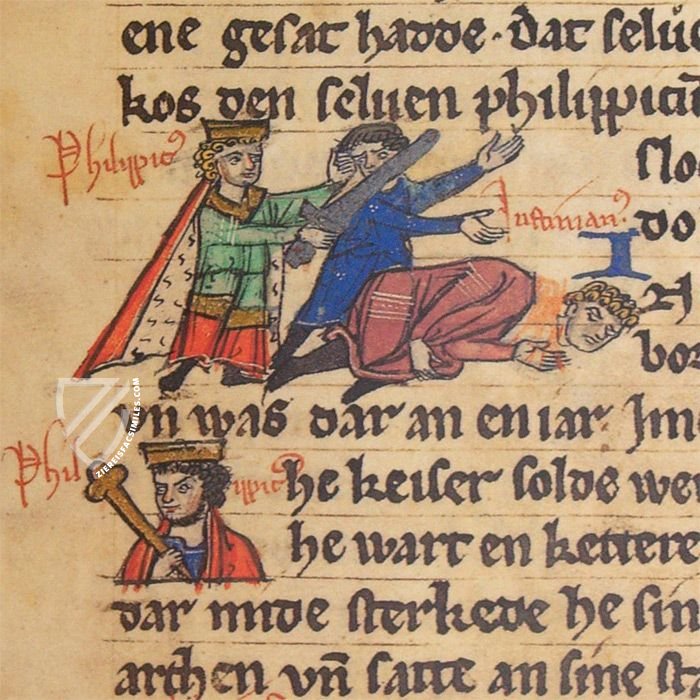 ene gesat hadde. Dat selue
kos den seluen philippicū
Philippic⁹
slo
Justinian⁹
do
I
bor
vn was dar an en iar. Jm
Phil ippic⁹
he keiser solde wer
he wart en kettere
dar mide sterkede he sin
archen vn̄ satte an sine st
ZIEREISFACSIMILES.COM